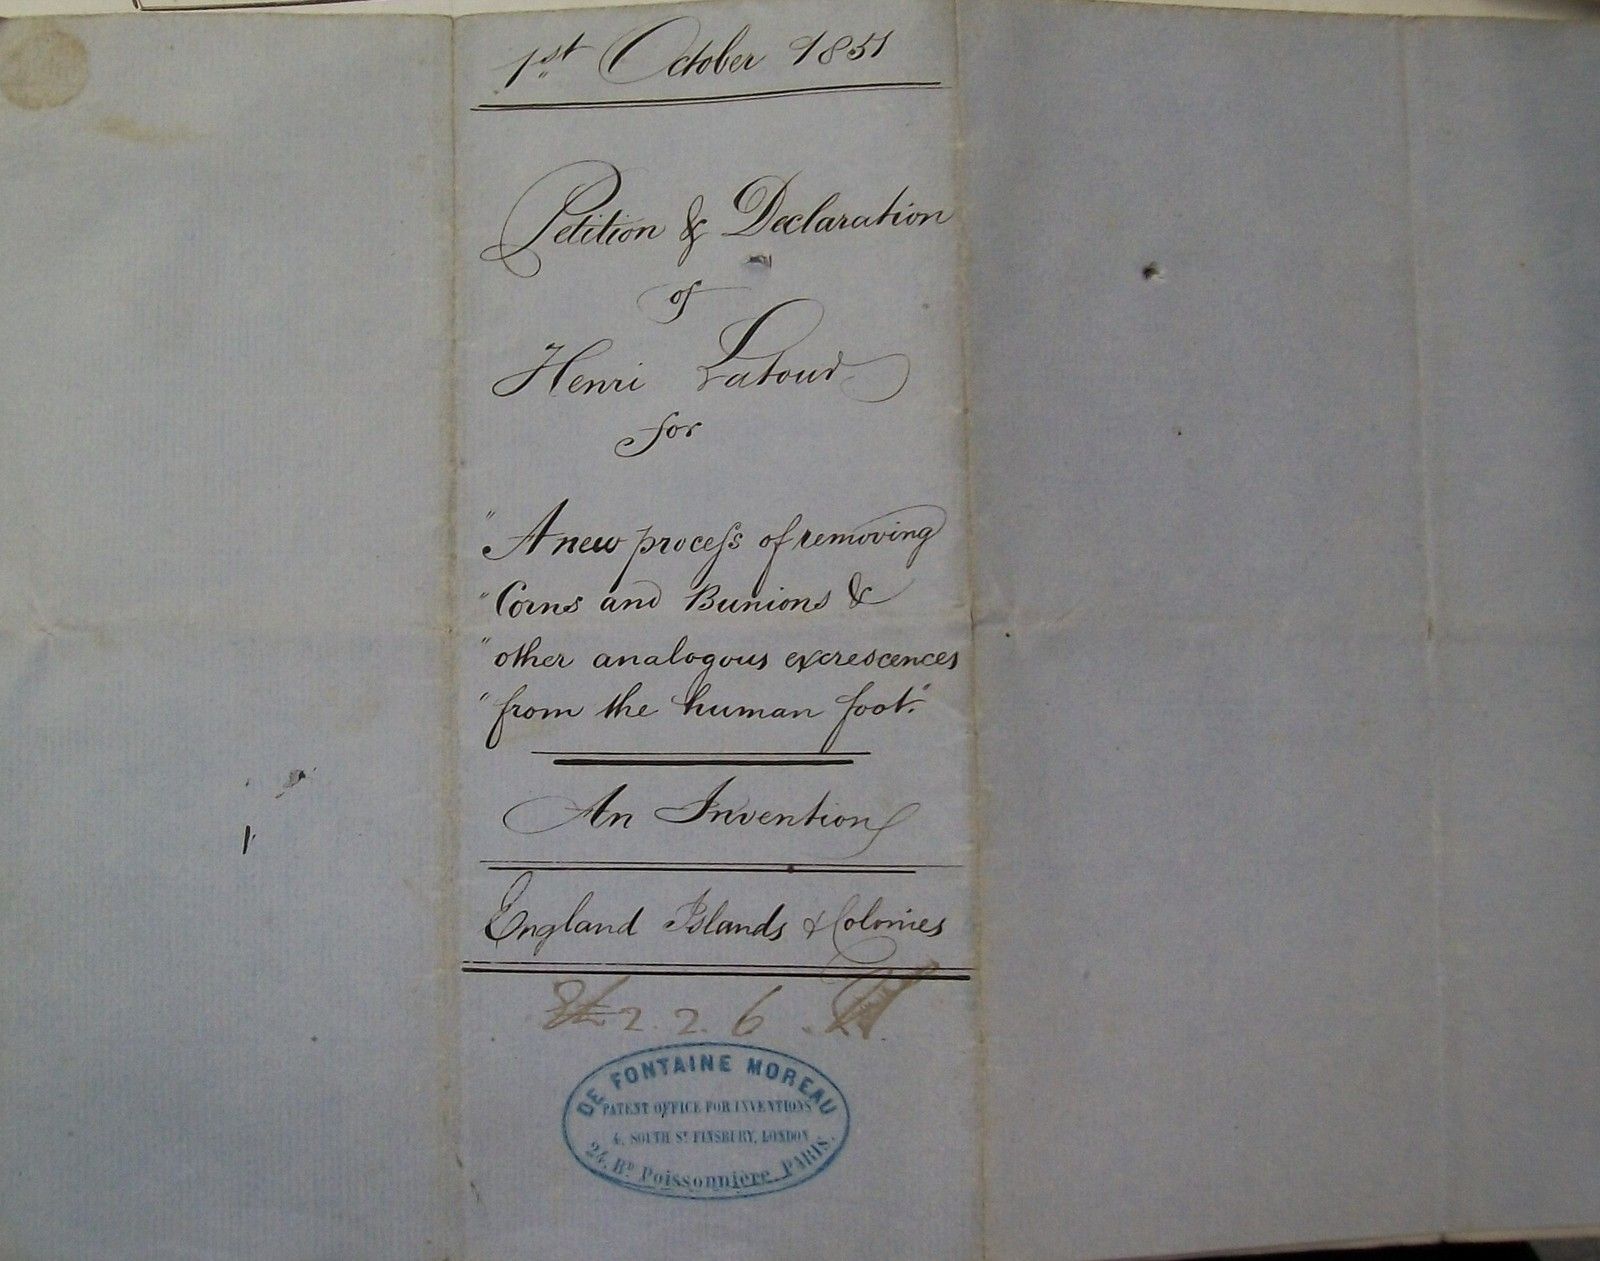 1st October 1851
Petition & Declaration
of
Henri Latour
for
"A new process of removing
" Corns and Bunions &
" other analogous excrescences
" from the human foot."
An Invention
England Islands & Colonies
2. 2. 6
DE FONTAINE MOREAU
PATENT OFFICE FOR INVENTIONS
4, SOUTH St FINSBURY, LONDON
24, Bd Poissonnière PARIS.